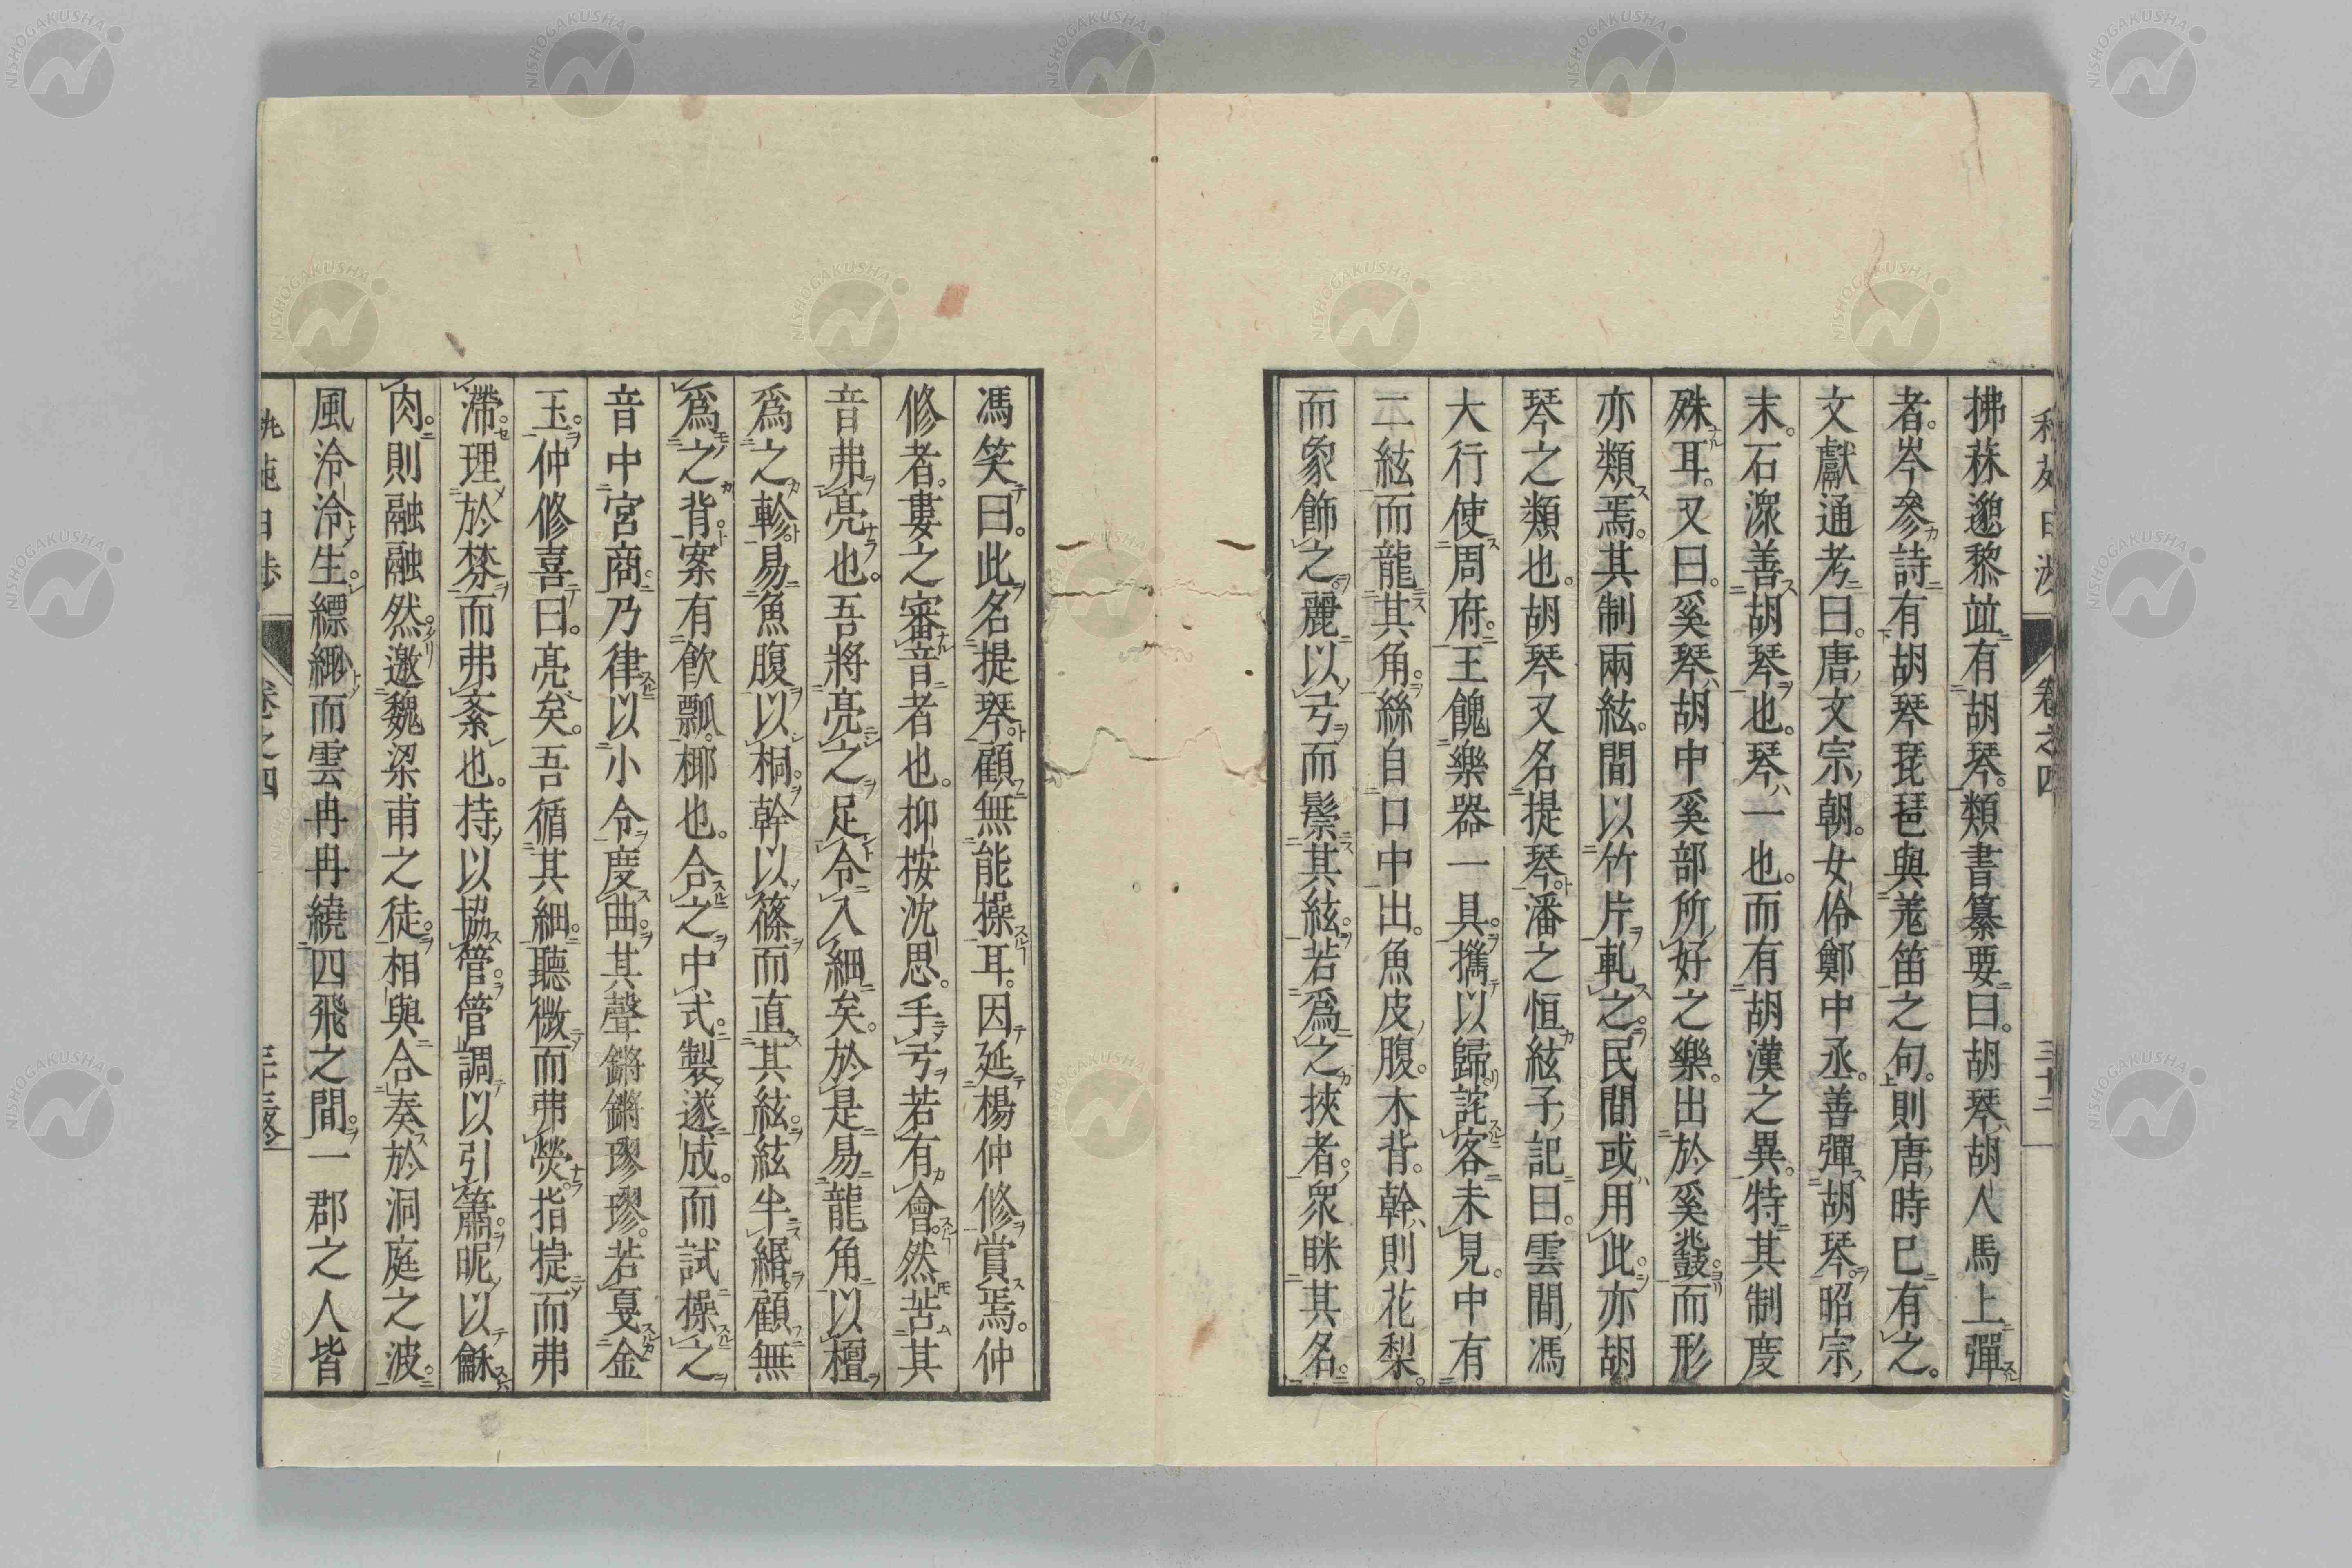 拂菻邈黎竝有胡琴。類書纂要曰。胡琴胡人馬上彈
者。岑參詩有胡琴琵琶與羗笛之句。則唐時已有之。
文獻通考曰。唐文宗朝。女伶鄭中丞。善彈胡琴。昭宗
末。石潨善胡琴也。琴一也。而有胡漢之異。特其制度
殊耳。又曰。奚琴胡中奚部所好之樂。出於奚鼗。而形
亦類焉。其制兩絃。間以竹片軋之。民間或用此。亦胡
琴之類也。胡琴又名提琴。潘之恒絃子記曰。雲間馮
大行使周府。王餽樂器一具。攜以歸。詫客未見。中有
二絃而龍其角。絲自口中出。魚皮腹。木背。幹則花梨。
而象飾之。麗以弓而鬃其絃。若爲之挾者。衆眯其名。
卷之四
馮笑曰。此名提琴。顧無能操耳。因延楊仲修賞焉。仲
修者。婁之審音者也。抑按沈思。手弓若有會。然苦其
音弗亮也。吾將亮之。足令入細矣。於是易龍角以檀
爲之軫。易魚腹以桐。幹以篠而直其絃。絃半緡。顧無
爲之背。案有飲瓢。椰也。合之中式。製遂成。而試操之
音中宮商。乃律以小令。度曲。其聲鏘鏘璆璆。若戛金
玉。仲修喜曰。亮矣。吾循其細。聽微而弗熒。指揵而弗
滯。理於棼而弗紊也。持以協管。管調以引簫。昵以龢
肉。則融融然。邀魏梁甫之徒。相與合奏於洞庭之波。
風泠泠生。縹緲而雲冉冉繞四飛之間。一郡之人皆
卷之四
NISHOGAKUSHA